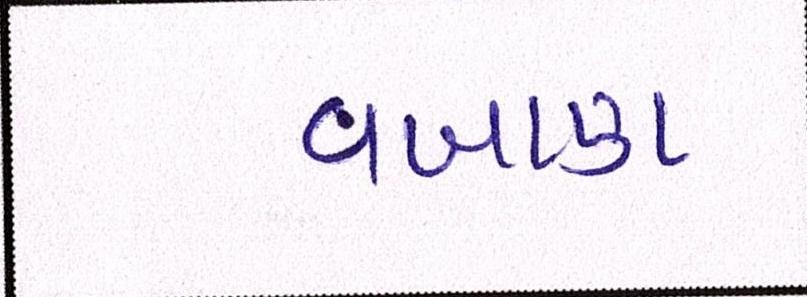 વખાણ